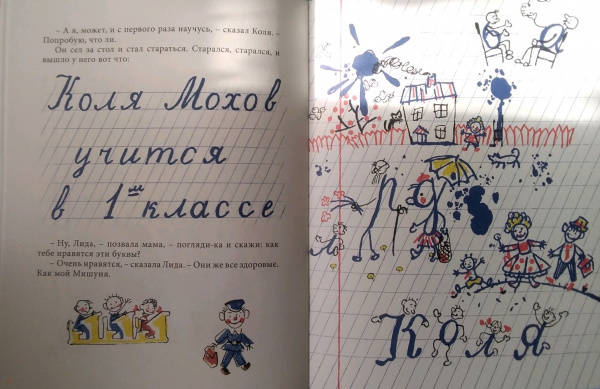 – А я, может, и с первого раза научусь, – сказал Коля. –
Попробую, что ли.
Он сел за стол и стал стараться. Старался, старался, и
вышло у него вот что:
Коля Мохов
учится
в 1ᵐ классе
– Ну, Лида, – позвала мама, – погляди-ка и скажи: как
тебе нравятся эти буквы?
– Очень нравятся, – сказала Лида. – Они же все здоровые.
Как мой Мишуня.
Коля